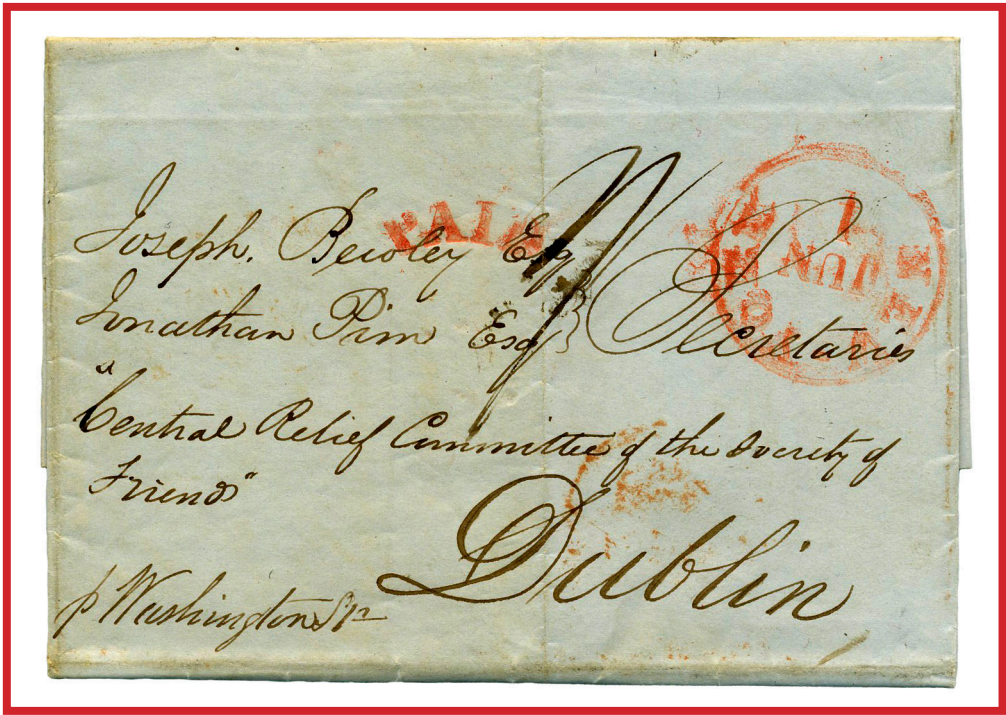 PAID
1
JUN
NEW YORK
Joseph. Bewley Esq
Jonathan Pim Esq } Secretaries
"Central Relief Committee of the Society of
Friends"
Dublin
p Washington Str